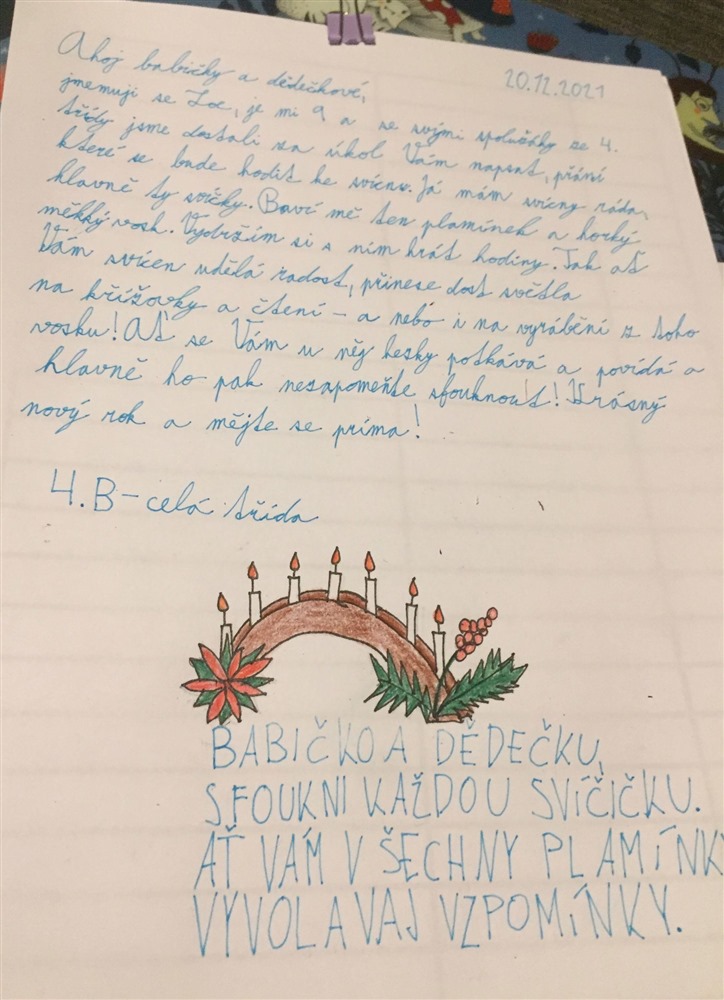 20.12.2021
Ahoj babičky a dědečkové,
jmenuji se Zoe, je mi 9 a se svými spolužáky ze 4.
třídy jsme dostali za úkol Vám napsat, přání
které se bude hodit ke svícnu. Já mám svícny ráda,
hlavně ty svíčky. Baví mě ten plamínek a horký
měkký vosk. Vydržím si s ním hrát hodiny. Tak ať
Vám svícen udělá radost, přinese dost světla
na křížovky a čtení – a nebo i na vyrábění z toho
vosku! Ať se Vám u něj hezky potkává a povídá a
hlavně ho pak nezapomeňte sfouknout! Krásný
nový rok a mějte se príma!
4. B – celá třída
BABIČKO A DĚDEČKU,
SFOUKNI KAŽDOU SVÍČIČKU.
AŤ VÁM VŠECHNY PLAMÍNKY
VYVOLAVAJ VZPOMÍNKY.